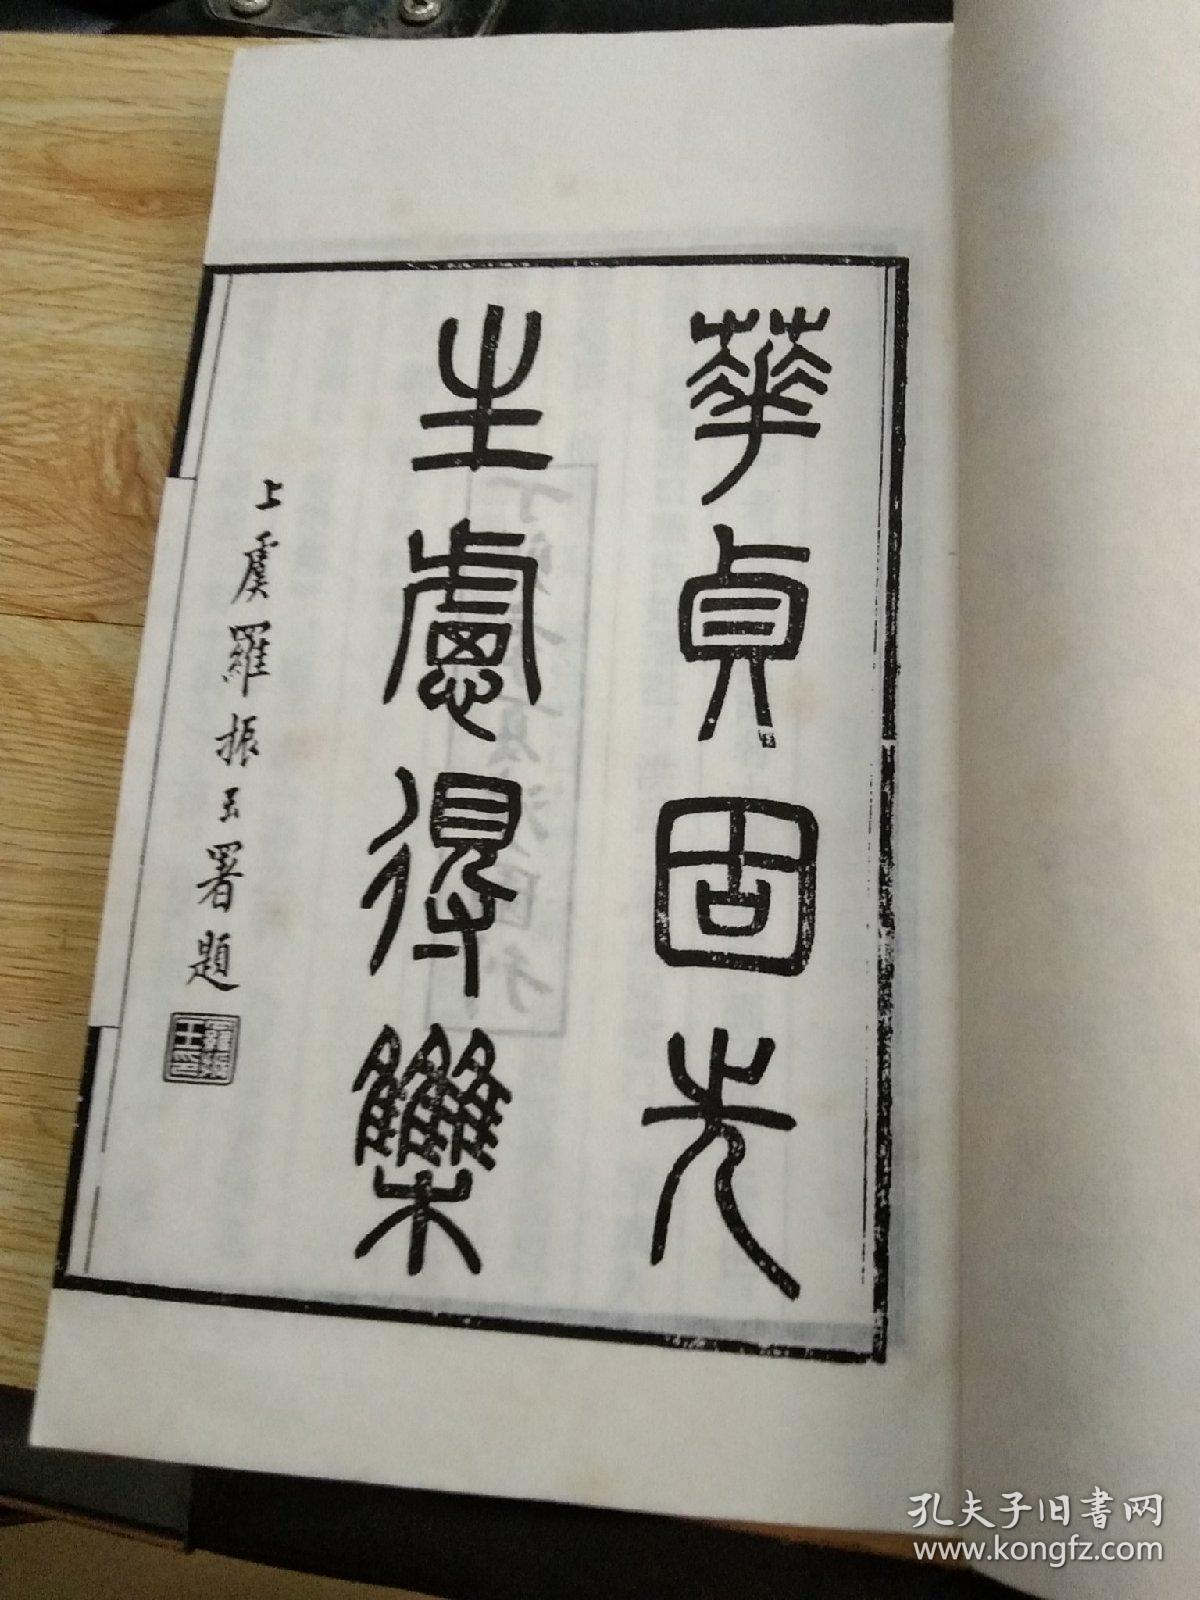 華貞固先
生慮得集
上虞羅振玉署題
羅振玉印
孔夫子旧书网
www.kongfz.com